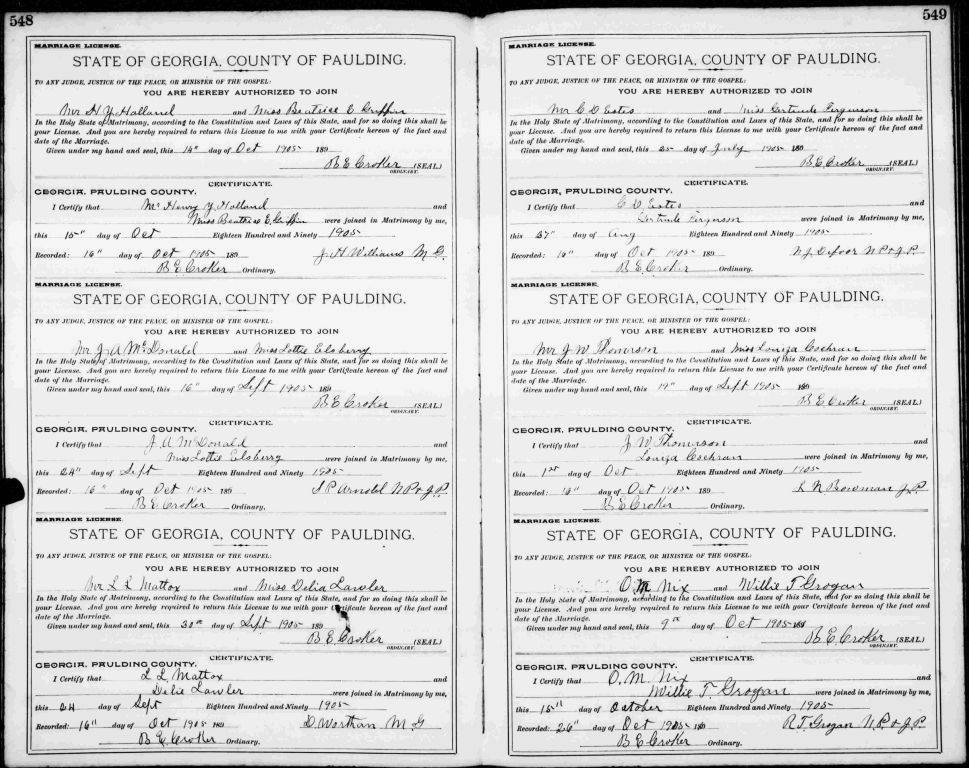 548
MARRIAGE LICENSE.
STATE OF GEORGIA, COUNTY OF PAULDING.
TO ANY JUDGE, JUSTICE OF THE PEACE, OR MINISTER OF THE GOSPEL:
YOU ARE HEREBY AUTHORIZED TO JOIN
Mr H Y Holland and Miss Beatrice E Griffin
In the Holy State of Matrimony, according to the Constitution and Laws of this State, and for so doing this shall be
your License. And you are hereby required to return this License to me with your Certificate hereon of the fact and
date of the Marriage.
Given under my hand and seal, this 14" day of Oct 1905 189
B E Croker (SEAL)
ORDINARY.
CERTIFICATE.
GEORGIA, PAULDING COUNTY.
I Certify that Mr Henry Y Holland and
Miss Beatrice E Griffin were joined in Matrimony by me,
this 15" day of Oct Eighteen Hundred and Ninety 1905
Recorded: 16" day of Oct 1905 189 J. H Williams M. G.
B E Croker Ordinary.
MARRIAGE LICENSE.
STATE OF GEORGIA, COUNTY OF PAULDING.
TO ANY JUDGE, JUSTICE OF THE PEACE, OR MINISTER OF THE GOSPEL:
YOU ARE HEREBY AUTHORIZED TO JOIN
Mr J. A McDonald and Miss Lottie Elsberry
In the Holy State of Matrimony, according to the Constitution and Laws of this State, and for so doing this shall be
your License. And you are hereby required to return this License to me with your Certificate hereon of the fact and
date of the Marriage.
Given under my hand and seal, this 16" day of Sept 1905 189
B E Croker (SEAL)
ORDINARY.
CERTIFICATE.
GEORGIA, PAULDING COUNTY.
I Certify that J. A McDonald and
Miss Lottie Elsberry were joined in Matrimony by me,
this 24" day of Sept Eighteen Hundred and Ninety 1905
Recorded: 16" day of Oct 1905 189 N P & J. P.
B E Croker Ordinary.
MARRIAGE LICENSE.
STATE OF GEORGIA, COUNTY OF PAULDING.
TO ANY JUDGE, JUSTICE OF THE PEACE, OR MINISTER OF THE GOSPEL:
YOU ARE HEREBY AUTHORIZED TO JOIN
Mr L L Mattox and Miss Delia Lawler
In the Holy State of Matrimony, according to the Constitution and Laws of this State, and for so doing this shall be
your License. And you are hereby required to return this License to me with your Certificate hereon of the fact and
date of the Marriage.
Given under my hand and seal, this 30th day of Sept 1905 189
B E Croker (SEAL)
ORDINARY.
CERTIFICATE.
GEORGIA, PAULDING COUNTY.
I Certify that L L Mattox and
Delia Lawler were joined in Matrimony by me,
this 24 day of Sept Eighteen Hundred and Ninety 1905
Recorded: 16" day of Oct 1905 189 D. Worthan M. G
B E Croker Ordinary.
549
MARRIAGE LICENSE.
STATE OF GEORGIA, COUNTY OF PAULDING.
TO ANY JUDGE, JUSTICE OF THE PEACE, OR MINISTER OF THE GOSPEL:
YOU ARE HEREBY AUTHORIZED TO JOIN
Mr C D Estes and Miss Gertrude Ferguson
In the Holy State of Matrimony, according to the Constitution and Laws of this State, and for so doing this shall be
your License. And you are hereby required to return this License to me with your Certificate hereon of the fact and
date of the Marriage.
Given under my hand and seal, this 25 day of July 1905 189
B E Croker (SEAL)
ORDINARY.
CERTIFICATE.
GEORGIA, PAULDING COUNTY.
I Certify that C D Estes and
Gertrude Ferguson were joined in Matrimony by me,
this 27" day of Aug Eighteen Hundred and Ninety 1905
Recorded: 16" day of Oct 1905 189 N. J. Defoor N P & J. P.
B E Croker Ordinary.
MARRIAGE LICENSE.
STATE OF GEORGIA, COUNTY OF PAULDING.
TO ANY JUDGE, JUSTICE OF THE PEACE, OR MINISTER OF THE GOSPEL:
YOU ARE HEREBY AUTHORIZED TO JOIN
Mr J W Thomrson and Miss Louiza Cochran
In the Holy State of Matrimony, according to the Constitution and Laws of this State, and for so doing this shall be
your License. And you are hereby required to return this License to me with your Certificate hereon of the fact and
date of the Marriage.
Given under my hand and seal, this 19" day of Sept 1905 189
B E Croker (SEAL)
ORDINARY.
CERTIFICATE.
GEORGIA, PAULDING COUNTY.
I Certify that J W Thomrson and
Louiza Cochran were joined in Matrimony by me,
this 1st day of Oct Eighteen Hundred and Ninety 1905
Recorded: 16" day of Oct 1905 189 L N Bowman J. P.
B E Croker Ordinary.
MARRIAGE LICENSE.
STATE OF GEORGIA, COUNTY OF PAULDING.
TO ANY JUDGE, JUSTICE OF THE PEACE, OR MINISTER OF THE GOSPEL:
YOU ARE HEREBY AUTHORIZED TO JOIN
O. M Nix and Willie T. Grogan
In the Holy State of Matrimony, according to the Constitution and Laws of this State, and for so doing this shall be
your License. And you are hereby required to return this License to me with your Certificate hereon of the fact and
date of the Marriage.
Given under my hand and seal, this 9th day of Oct 1905 189
B E Croker (SEAL)
ORDINARY.
CERTIFICATE.
GEORGIA, PAULDING COUNTY.
I Certify that O. M. Nix and
Willie T. Grogan were joined in Matrimony by me,
this 15th day of October Eighteen Hundred and Ninety 1905
Recorded: 26" day of Oct 1905 189 R. T. Grogan N. P. & J. P.
B E Croker Ordinary.